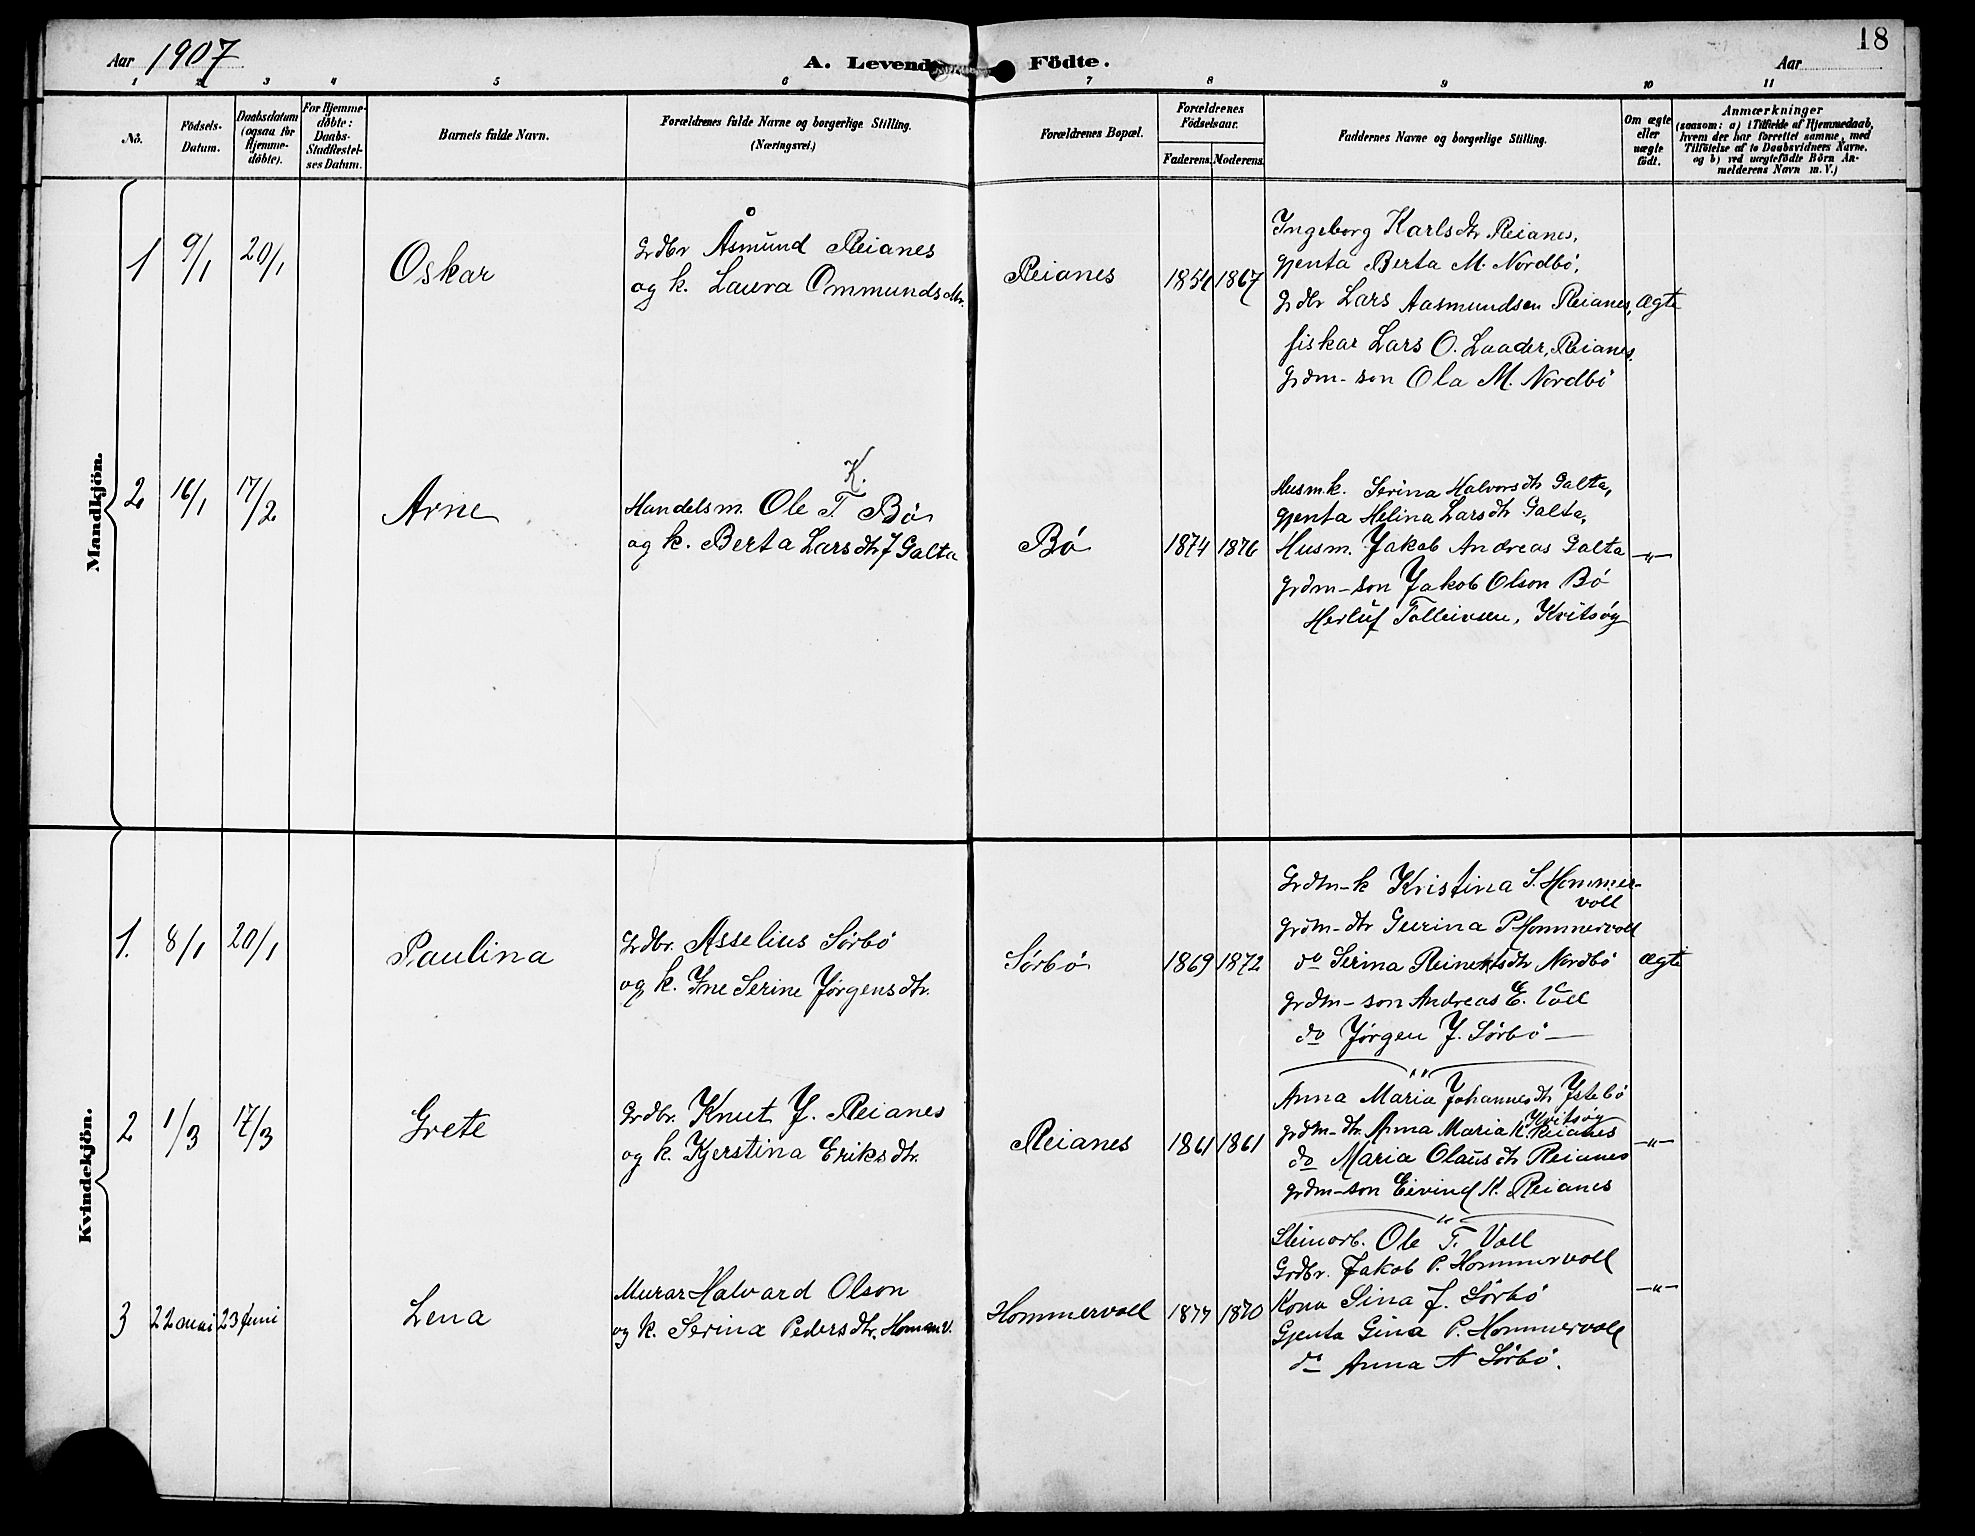 18
Aar 1907
A. Levende Födte.
Aar
1 2 3 4 5 6 7 8 9 10 11
No.
Födsels-Datum.
Daabsdatum (ogsaa for Hjemmedöbte).
For Hjemmedöbte: Daabs-Stadfestelses Datum.
Barnets fulde Navn.
Forældrenes fulde Navne og borgerlige Stilling. (Næringsvei.)
Forældrenes Bopæl.
Forældrenes Födselsaar.
Faderens. Moderens.
Faddernes Navne og borgerlige Stilling.
Om ægte eller uægte født.
Anmærkninger
(saasom: a) i Tilfælde af Hjemmedaab, hvem der har forrettet samme, med Tilföielse af to Daabsvidners Navne, og b) ved uægtefödte Börn Anmelderens Navn m. V.)
Mandkjön.
1 9/1 20/1 Oskar
Grdbr Åsmund Reianes
og k. Laura Ommundsdtr.
Reianes 1854 1867
Ingeborg Karlsdtr Reianes,
gjenta Berta M. Nordbø,
Grdbr Lars Aasmundsen Reianes, ægte
fiskar Lars O. Laader, Reianes.
Grdm-son Ola M. Nordbø
2 16/1 17/2 Arne
K.
Handelsm. Ole T Bø
og k. Berta Larsdtr f Galta
Bø 1874 1876
Husmk. Serina Halvorsdtr Galta,
gjenta Helina Larsdtr Galta,
Husm. Jakob Andreas Galta —"—
grdm-son Jakob Olson Bø
Herluf Tolleivsen, Kvitsøy
Kvindekjön.
1. 8/1 20/1 Paulina
Grdbr. Asselius Sørbø
og k. Ine Serine Jørgensdtr.
Sørbø 1869 1872
Grdm-k Kristina S. Hommer-
voll
grdm-dtr Gurina P Hommervoll
do Serina Reinertsdtr Nordbø ægte
grdm-son Andreas E. Voll
do Jørgen J. Sørbø —
"
2 1/3 17/3 Grete
Grdbr. Knut J. Reianes
og k. Kjerstina Eriksdtr.
Reianes 1861 1861
Anna Maria Johannesdtr Ystebø
Kvitsøy
grdm-dtr. Anna Maria K. Reianes
do Maria Olausdtr Reianes —"—
grdm-son Eivind K. Reianes
"
3 22 mai 23 juni Lena
Murar Halvard Olson
og k. Serina Pedersdtr. Homm.v.
Hommervoll 1877 1870
Steinarb. Ole T. Voll
Grdbr. Jakob P. Hommervoll
Kona Sina J. Sørbø —"—
Gjenta Gina P. Hommervoll
do Anna A Sørbø.